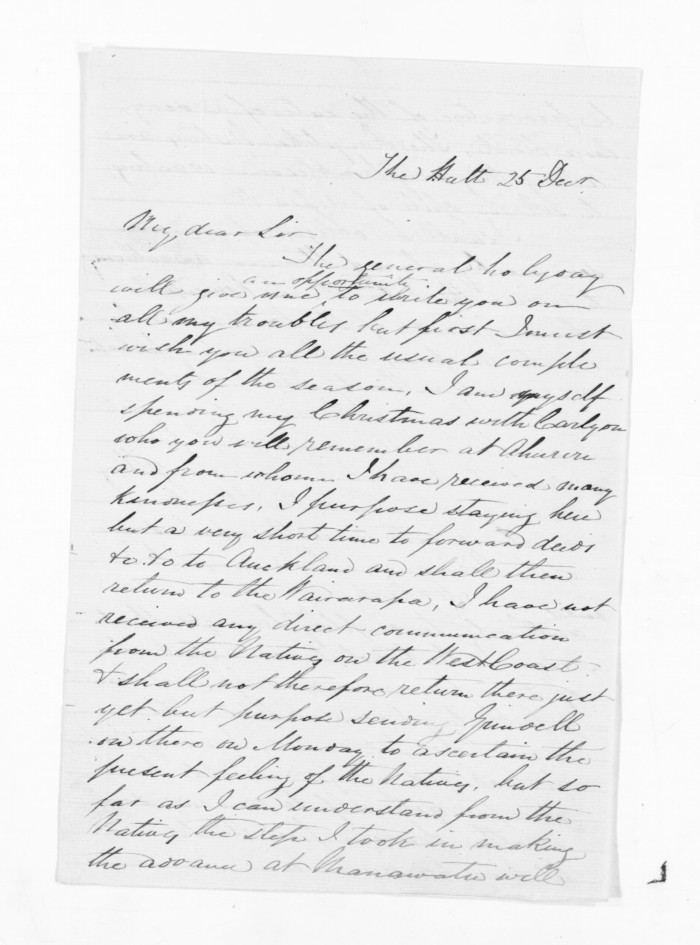 The Hutt 25 Decr
My dear Sir
The general holyday
will give me an opportunity to write you on
all my troubles but first I must
wish you all the usual comple
ments of the season. I am myself
spending my Christmas with Carlyon
who you will remember at Ahuriri
and from whom I have received many
kindnesses. I purpose staying here
but a very short time to forward deeds
&c. &c to Auckland and shall then
return to the Wairarapa. I have not
received any direct communication
from the Natives on the West Coast
& shall not therefore return there just
yet but purpose sending Grindell
on there on Monday to ascertain the
present feeling of the Natives, but so
far as I can understand from the
Natives the step I took in making
the advance at Manawatu will